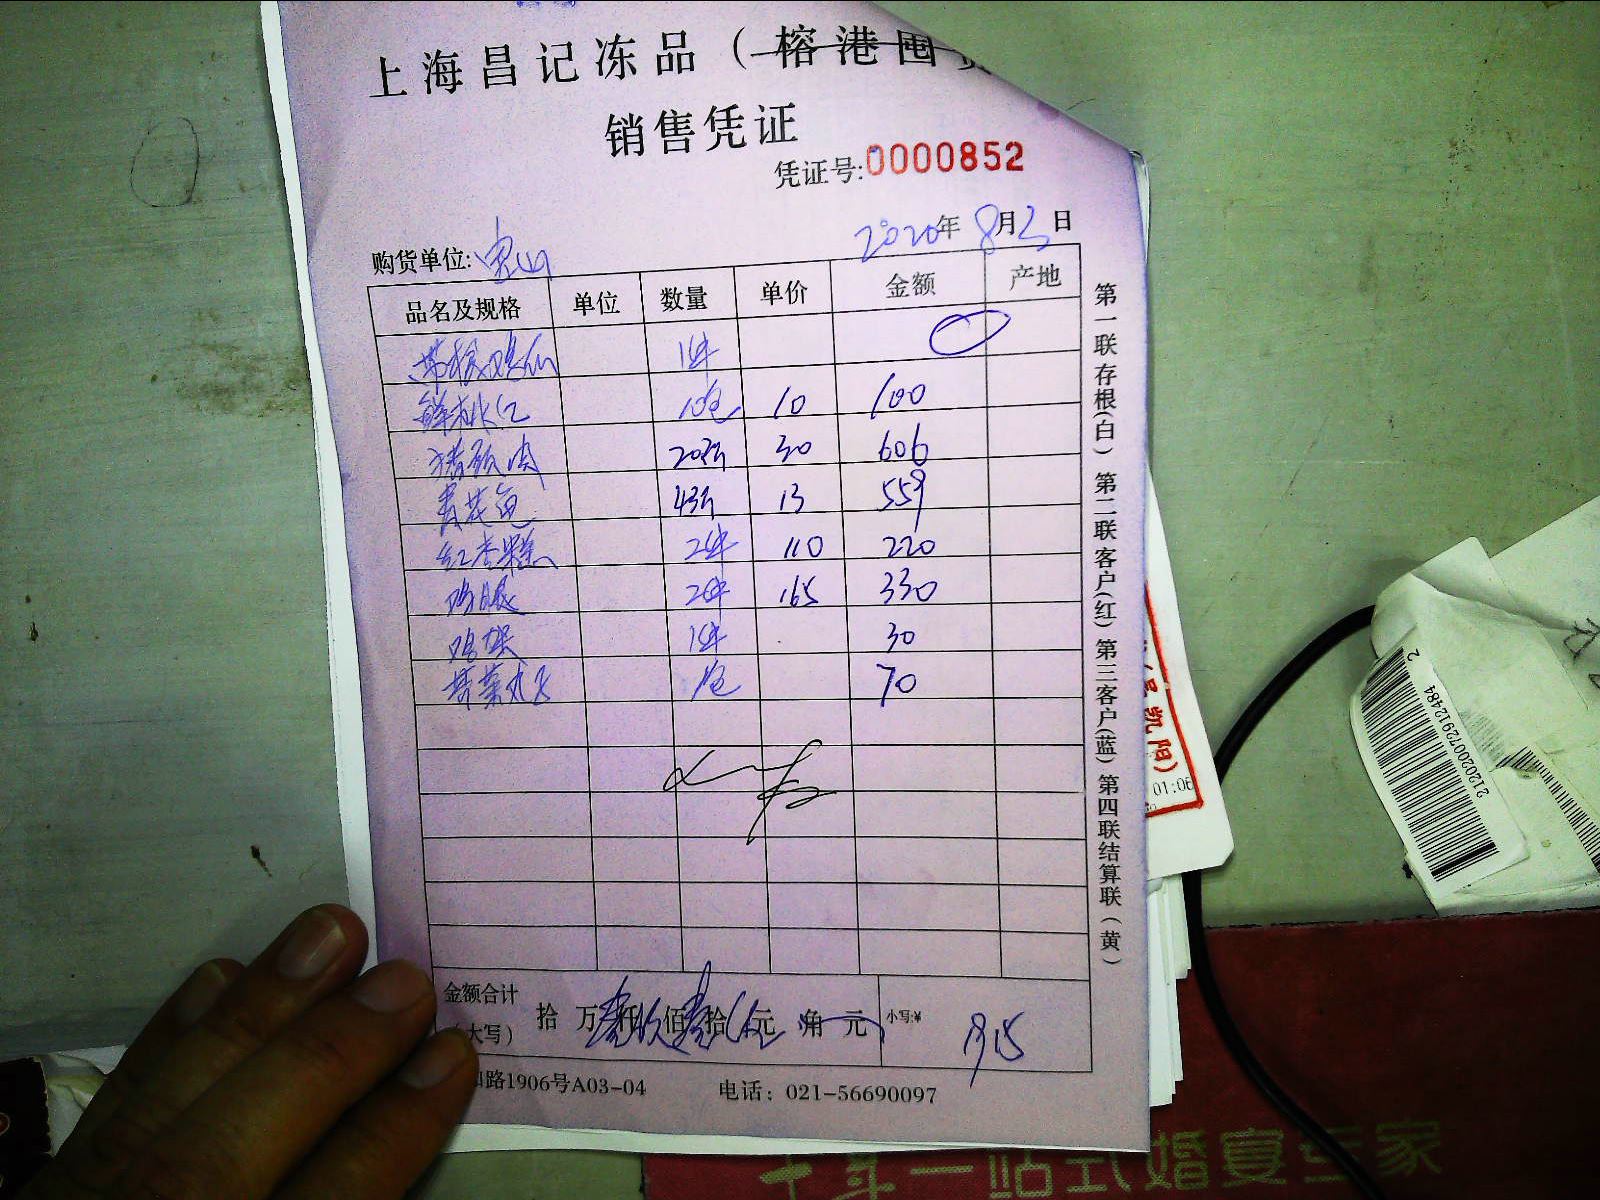 上海昌记冻品（榕港囤
销售凭证
凭证号:0000852
2020年8月2日
购货单位:
品名及规格 单位 数量 单价 金额 产地
1件
10包 10 100
猪颈肉 202斤 30 606
青花鱼 43斤 13 559
红枣糕 2件 110 220
鸡腿 2件 165 330
鸡架 1件 30
1包 70
金额合计
大写） 拾 万 仟 佰 拾 元 角 元 小写:¥ 1915
路1906号A03-04 电话：021-56690097
第一联存根(白) 第二联客户(红) 第三客户(蓝) 第四联结算联（黄）
凯阳）
01:06
212020072912484
2
十年一站式婚宴专家